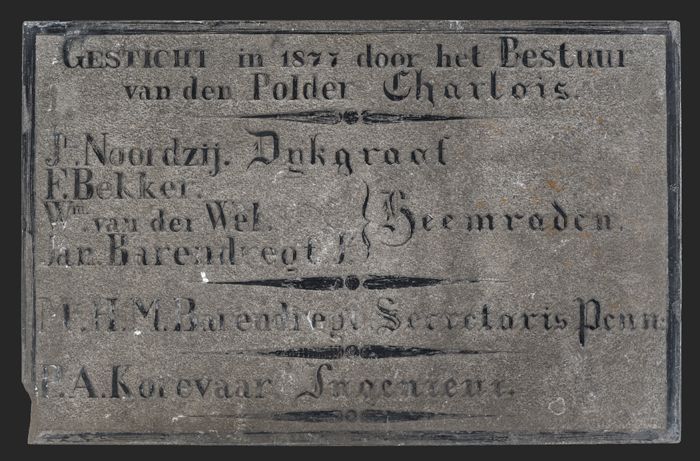 GESTICHT in 1877 door het Bestuur
van den Polder Charlois.
Jn. Noordzij. Dykgraaf
F. Bekker.
Wm. van der Wek.
Jan. Barendregt
Heemraden.
H. M. Barendregt. Secretaris Penn:
P. A. Korevaar Ingenieur.